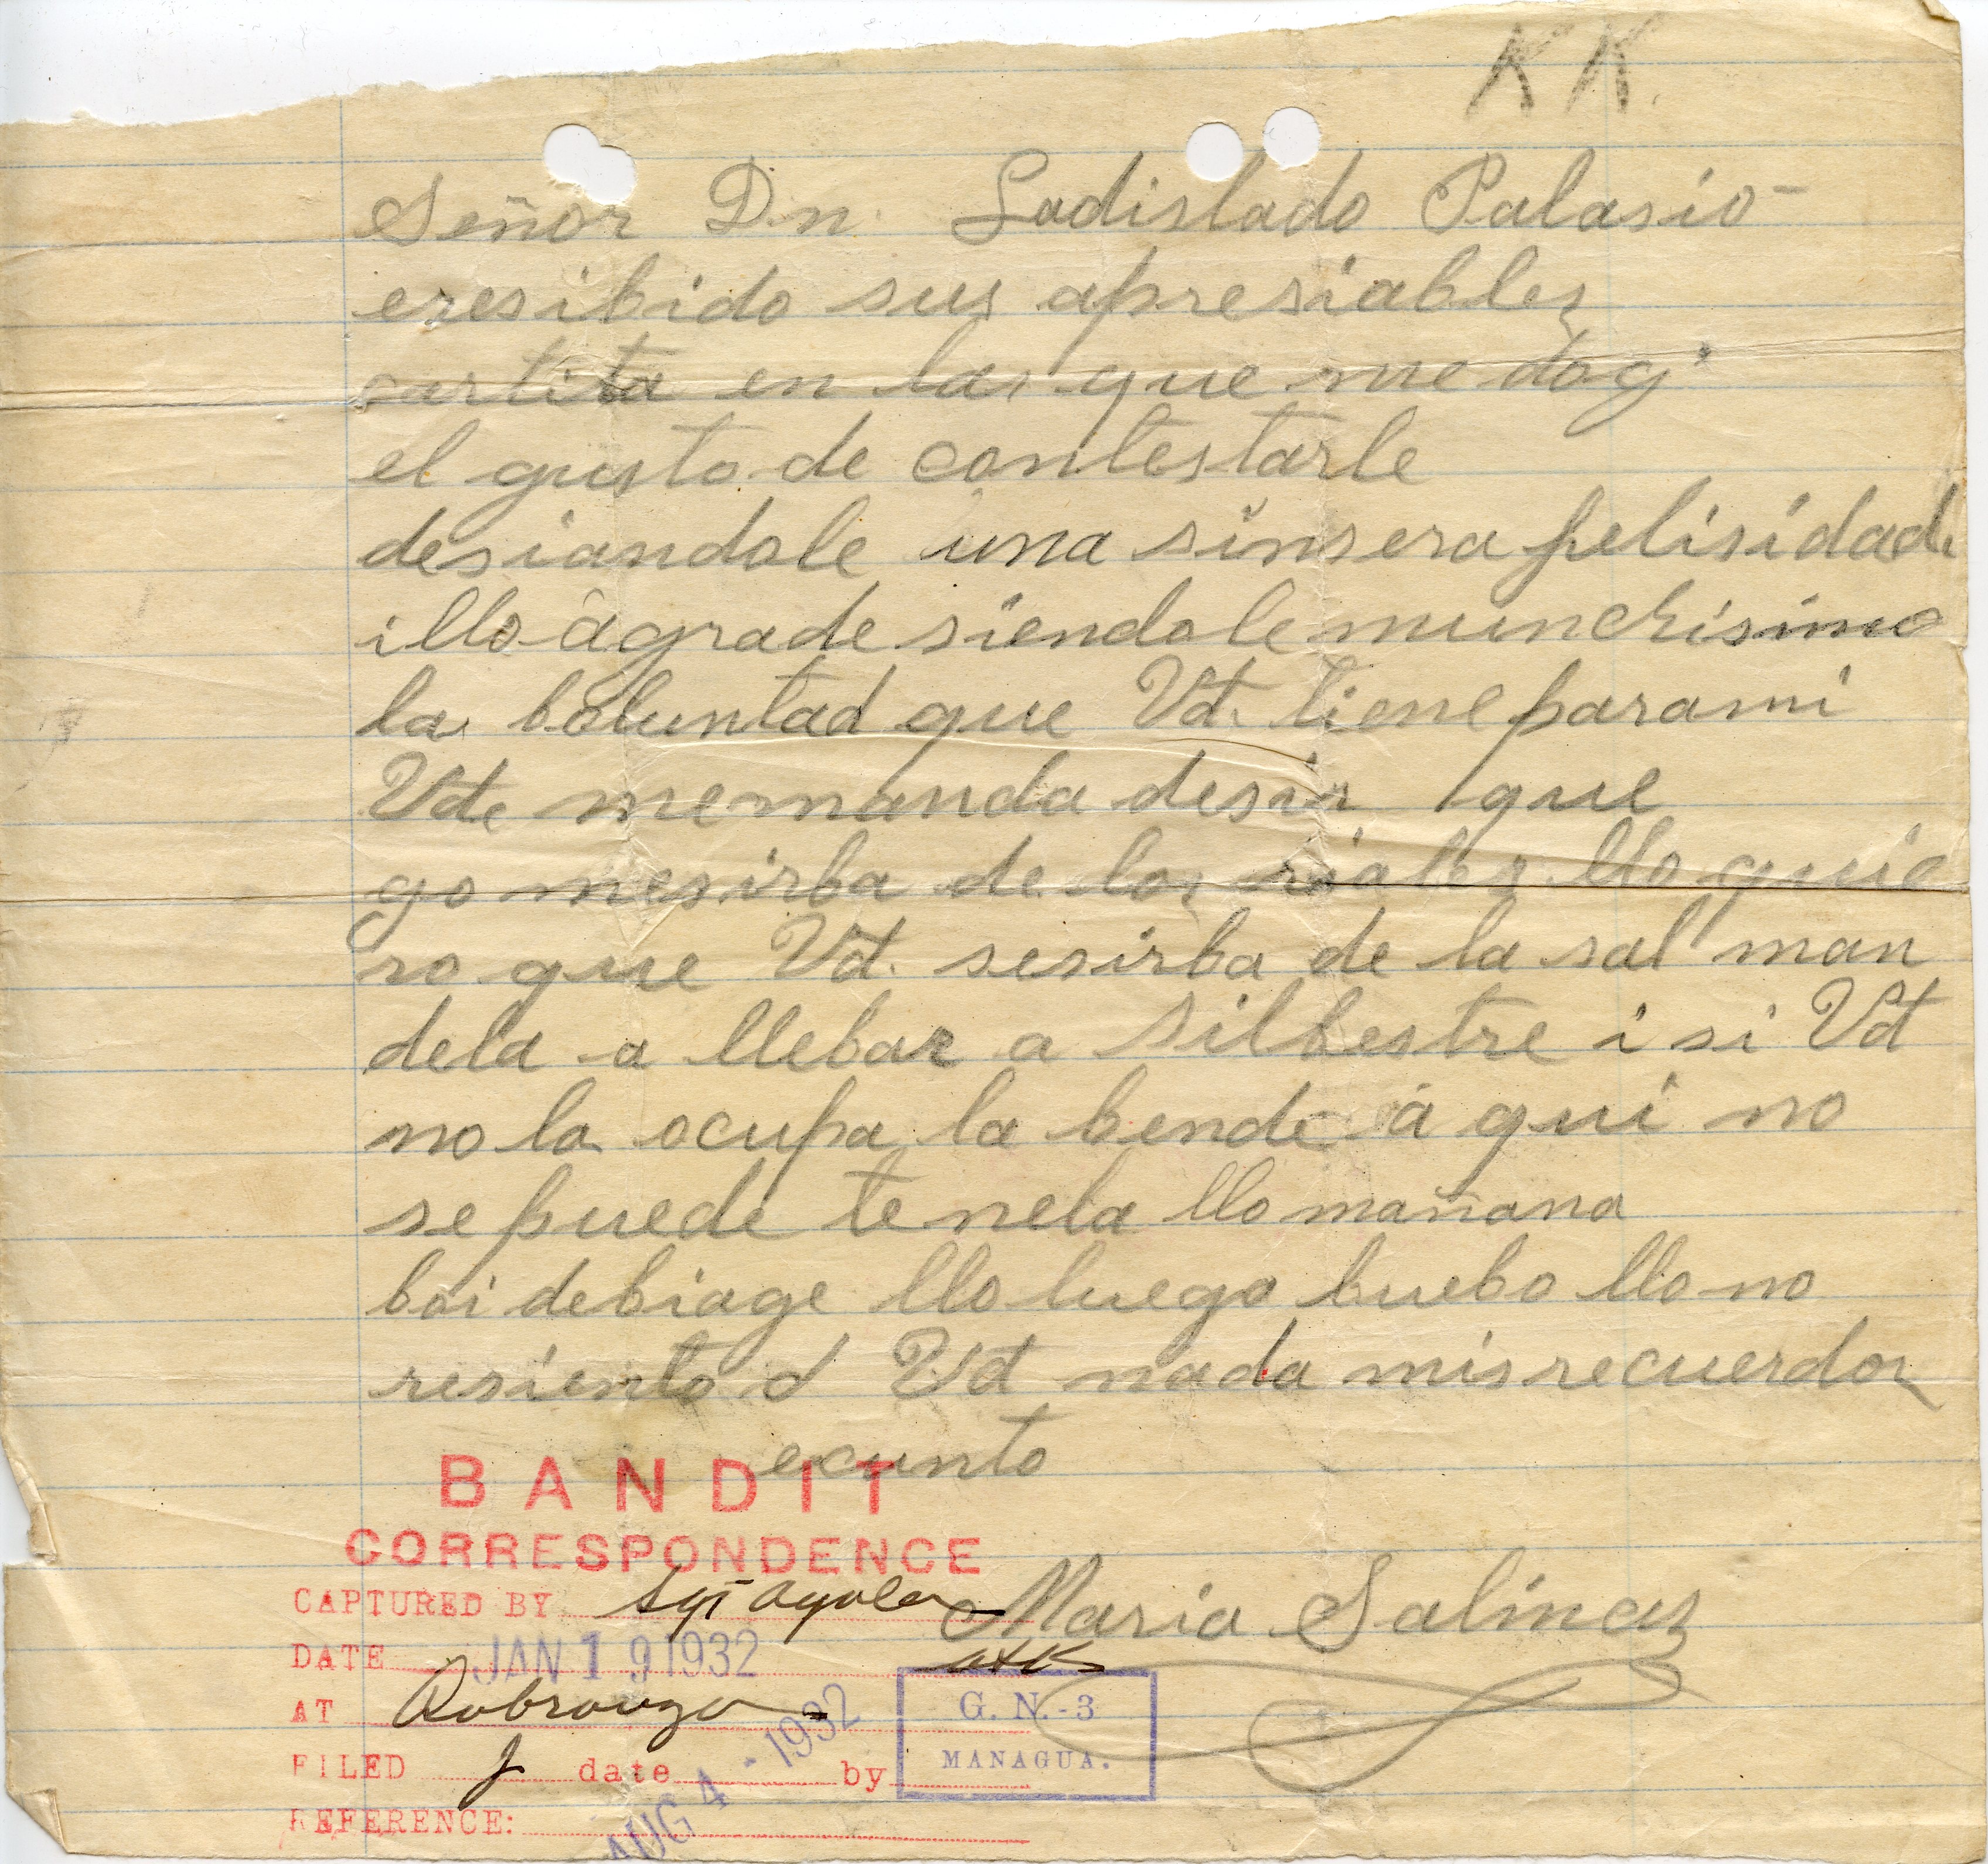 KK.
Señor Dn. Ladislado Palasio-
eresibido sus apresiables
cartita en las que me doy
el gusto de contestarle
desiandole una sinsera felisidad.
illo ágrade siendole munchisimo
la boluntad que Vd. tiene parami
Vd. memanda desir que
go mesirba de los riales llo quie
ro que Vd. sesirba de la sal man
dela a llebar a silbestre i si Vd
no la ocupa la bende á qui no
se puede tenela llo mañana
boi debiage llo luego buebo llo no
resiento d Vd nada misrecuerdos
ecunto
BANDIT
CORRESPONDENCE
CAPTURED BY Sgt Ayala
Maria Salinas
DATE JAN 19 1932
AT
G. N.-3
FILED date by
MANAGUA.
AUG 4 - 1932
REFERENCE: